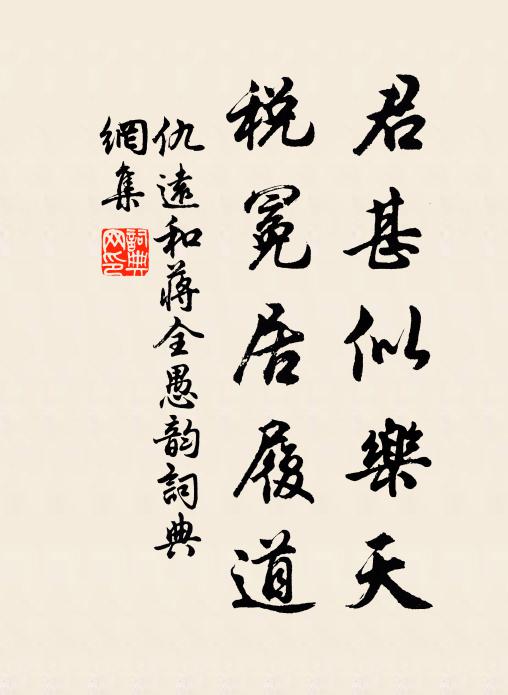 君甚似樂天
税冕居履道
仇遠和蔣全愚韵詞典
網集
詞典網印